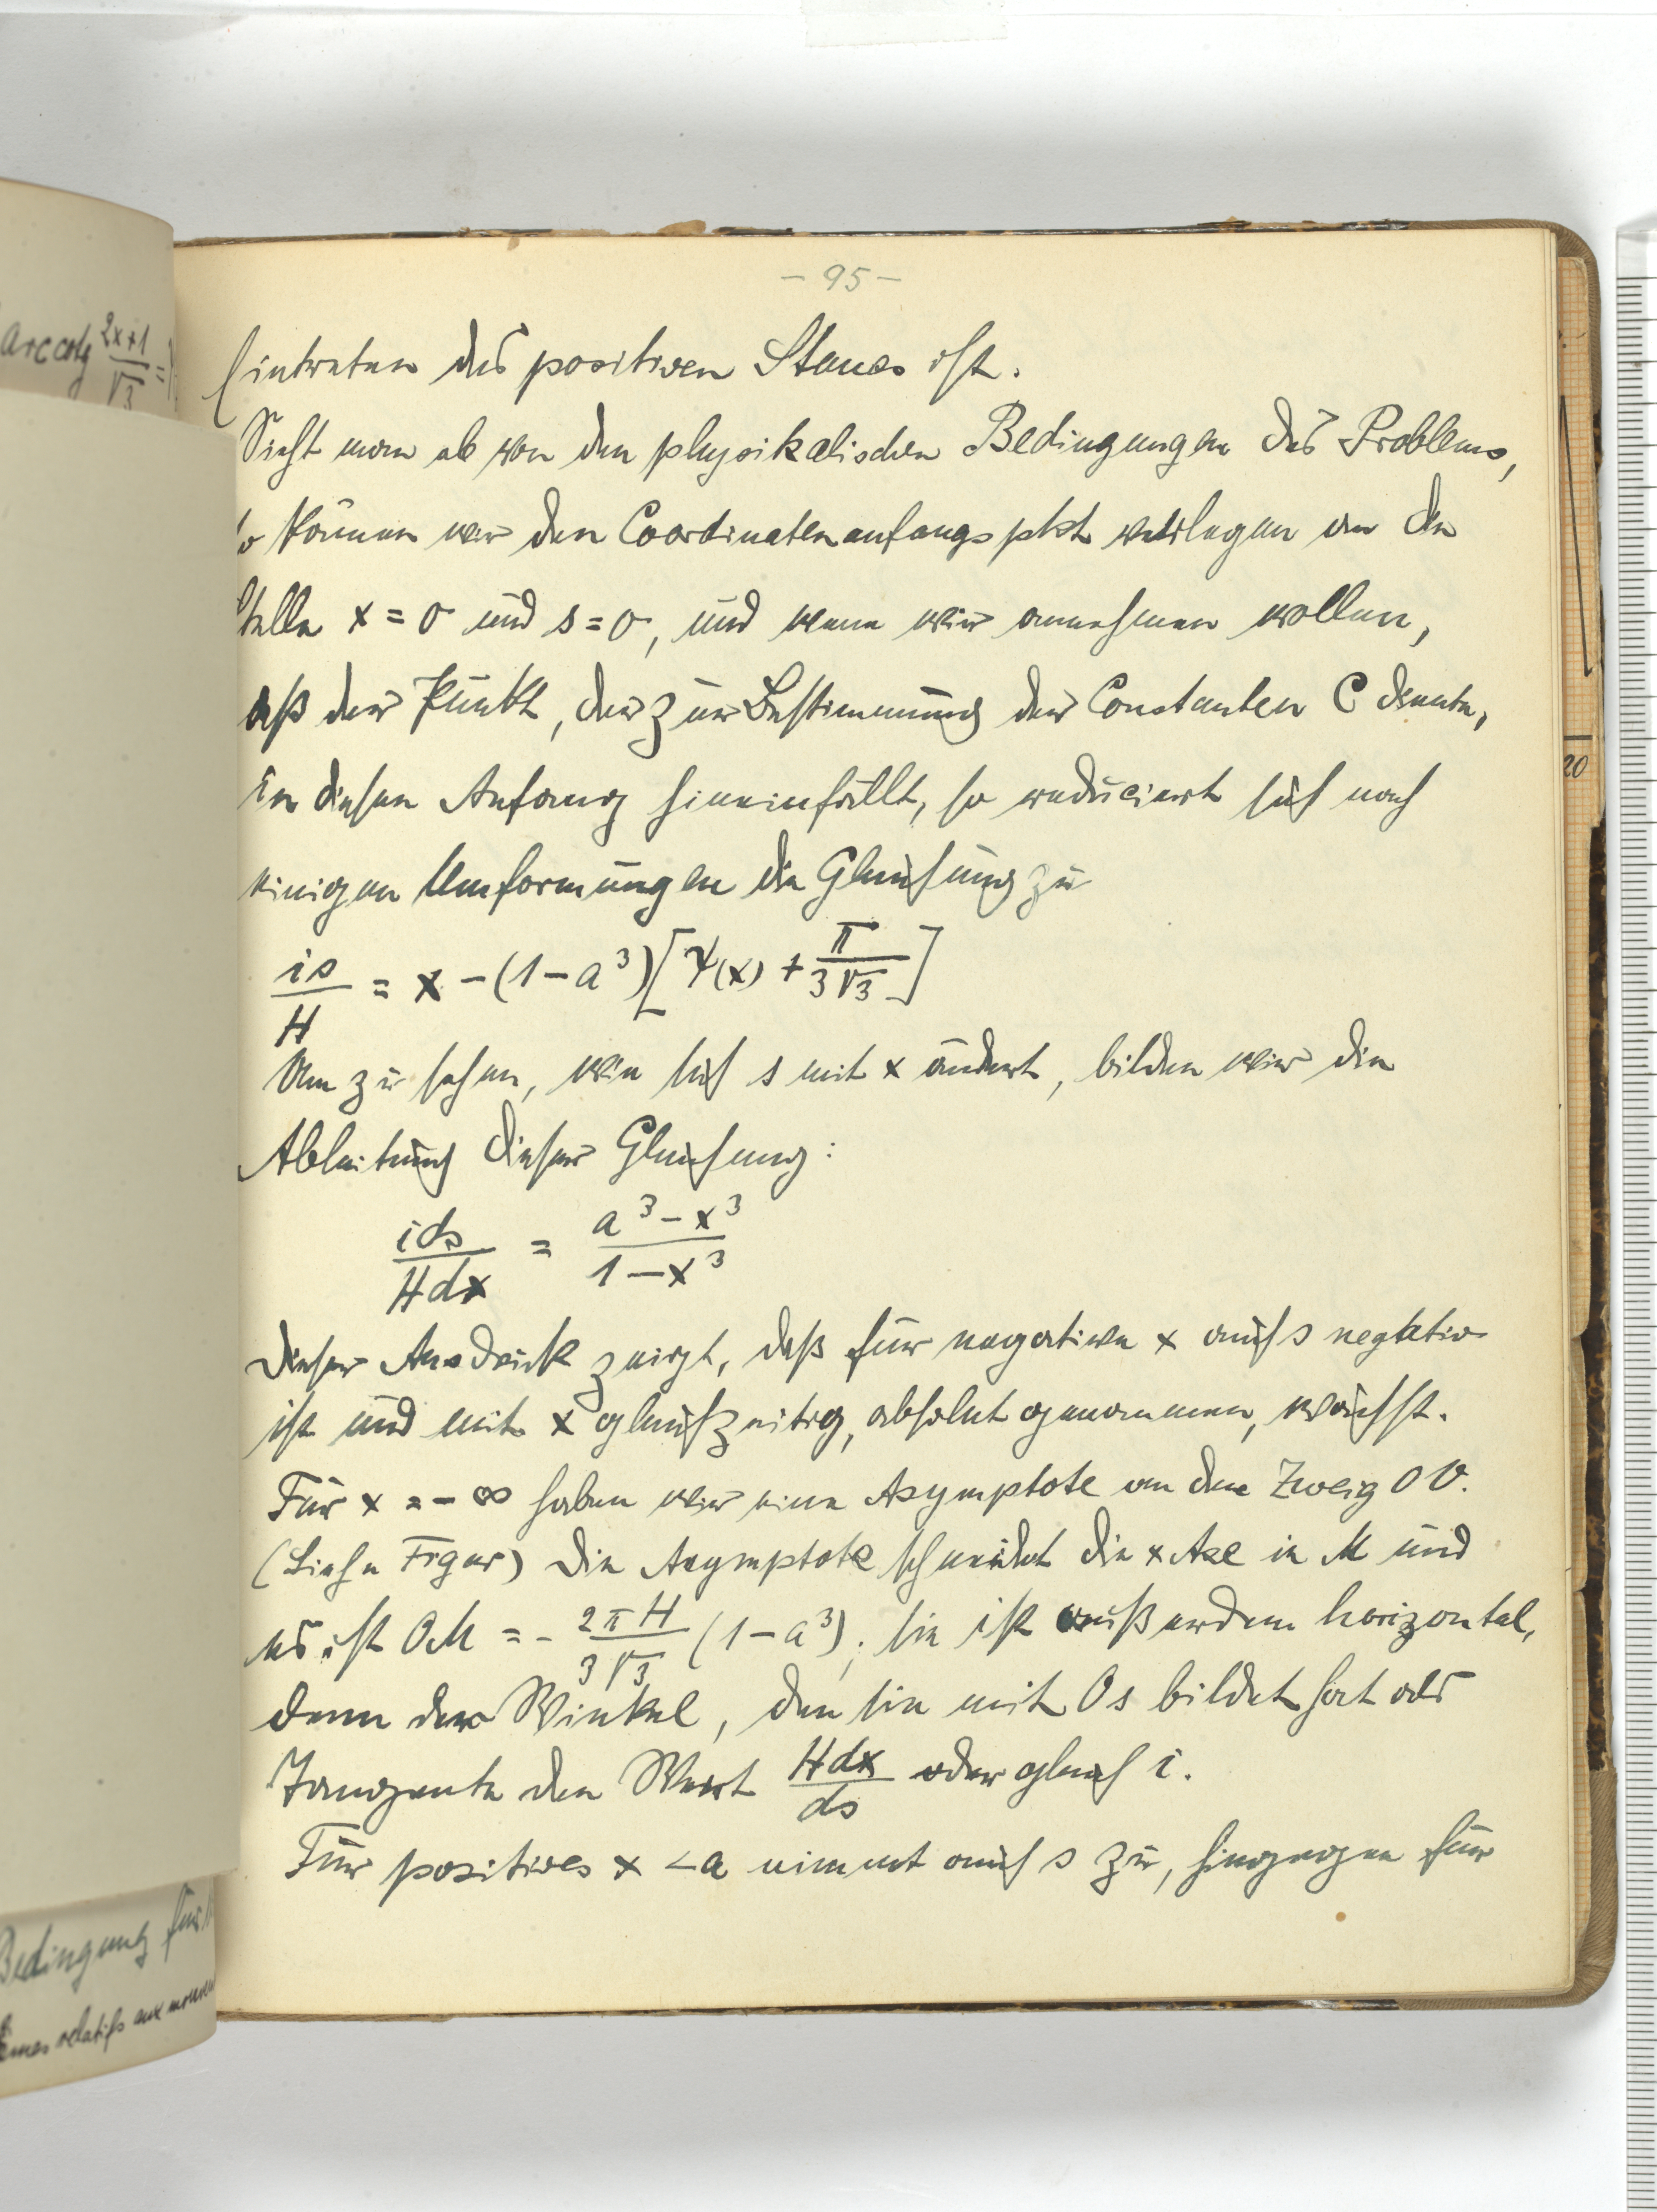 - 95 -
Eintreten des positiven Staues ist.
Sieht man ab von den physikalischen Bedingungen des Problems,
so können wir den Coordinatenanfangspkt verlegen an die
Stelle x = 0 und s = 0, und wenn wir annehmen wollen,
daß der Punkt, der zur Bestimmung der Constanten C diente,
in diesen Anfang hineinfällt, so reduciert sich nach
einigen Umformungen die Gleichung zu
is/H = x - (1 - a³)[Ψ(x) + π/3√3]
Um zu sehen, wie sich s mit x ändert, bilden wir die
Ableitung dieser Gleichung:
ids/Hdx = a³ - x³/1 - x³
Dieser Ausdruck zeigt, daß für negative x auch s negativ
ist und mit x gleichzeitig, absolut genommen, wächst.
Für x = - ∞ haben wir eine Asymptote an den Zweig OV.
(Siehe Figur) Die Asymptote schneidet die x Axe in M und
es ist OM = - 2πH/3√3 (1 - a³); sie ist außerdem horizontal,
denn der Winkel, den sie mit Os bildet hat als
Tangente den Wert Hdx/ds oder gleich i.
Für positives x < a nimmt auch s zu, hingegen für
arc cotg 2x+1/√3 =
Bedingung für
relatifs aux
20